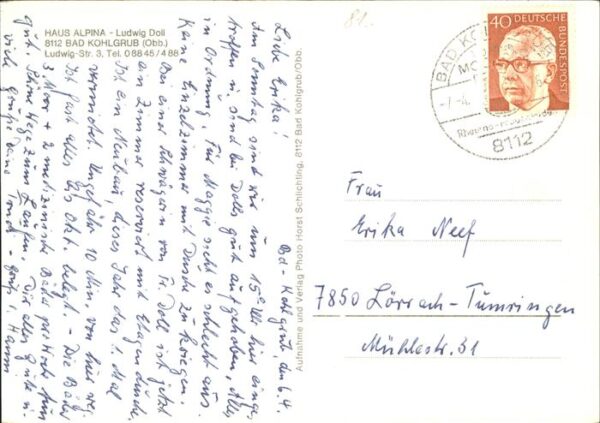 HAUS ALPINA - Ludwig Doll
8112 BAD KOHLGRUB (Obb.)
Ludwig-Str. 3, Tel. 0 88 45 / 4 88
81.
Bd-Kohlgrub, den 6.4.
Liebe Erika!
Am Sonntag sind wir um 15°° Uhr hier einge-
troffen u. sind bei Dolls gut aufgehoben, Alles
in Ordnung. Für Maggie sieht es schlecht aus.
Keine Einzelzimmer mit Dusche zu kriegen.
Bei einer Schwägerin von Fr. Doll ist jetzt
ein Zimmer reserviert mit Etagendusche.
Ist ein Neubau, dieses Jahr das 1. Mal
vermietet. Ungefähr 10 Min. von hier weg.
Ist fast alles bis Okt. belegt. - Die Bäder
3 Moor + 2 medizinische Bäder pro Woche tun
gut. Schöne Wege zum Laufen. Dir alles Gute u.
viele Grüße Deine
Hanni
Aufnahme und Verlag Photo Horst Schlichting, 8112 Bad Kohlgrub/Obb.
40 DEUTSCHE BUNDESPOST
BAD KO
MO
8112
Frau
Erika Neef
7850 Lörrach-Tumringen
Mühlestr. 31